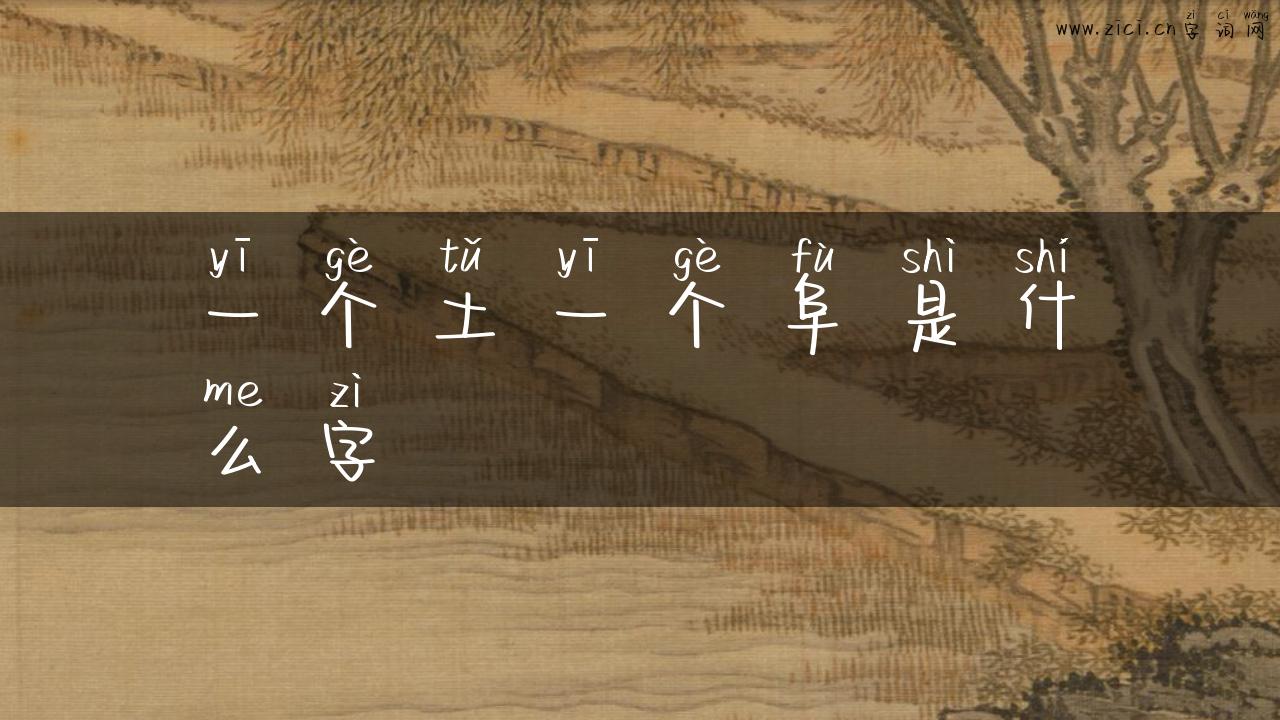 zì cí wǎng
www.zici.cn字词网
yī gè tǔ yī gè fù shì shí
一个土一个阜是什
me zì
么字